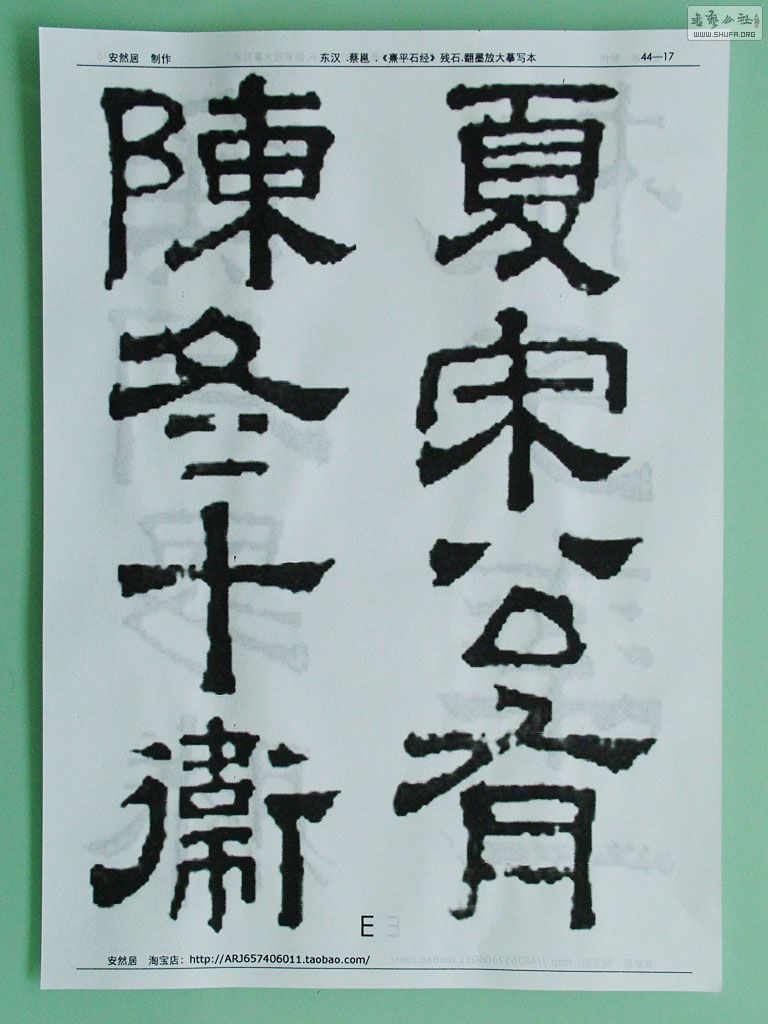 書藝公社
WWW.SHUFA.ORG
安然居 制作 东汉.蔡邕.《熹平石经》残石.翻墨放大摹写本 44—17
夏宋公肴
陳冬十衛
E
安然居 淘宝店：http://ARJ657406011.taobao.com/